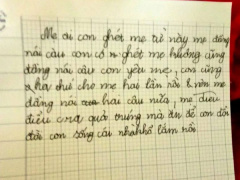 Mẹ ơi con ghét mẹ từ nay mẹ đừng
nói câu con có ghét mẹ không cũng
đừng nói câu con yêu mẹ, con cũng
hạ chữ cho mẹ hai lần rồi nên mẹ
đừng nói hai câu nữa, mẹ điều
điều cưa quả trứng mà ăn để con đói
đời con sống cái nhà khổ lắm rồi